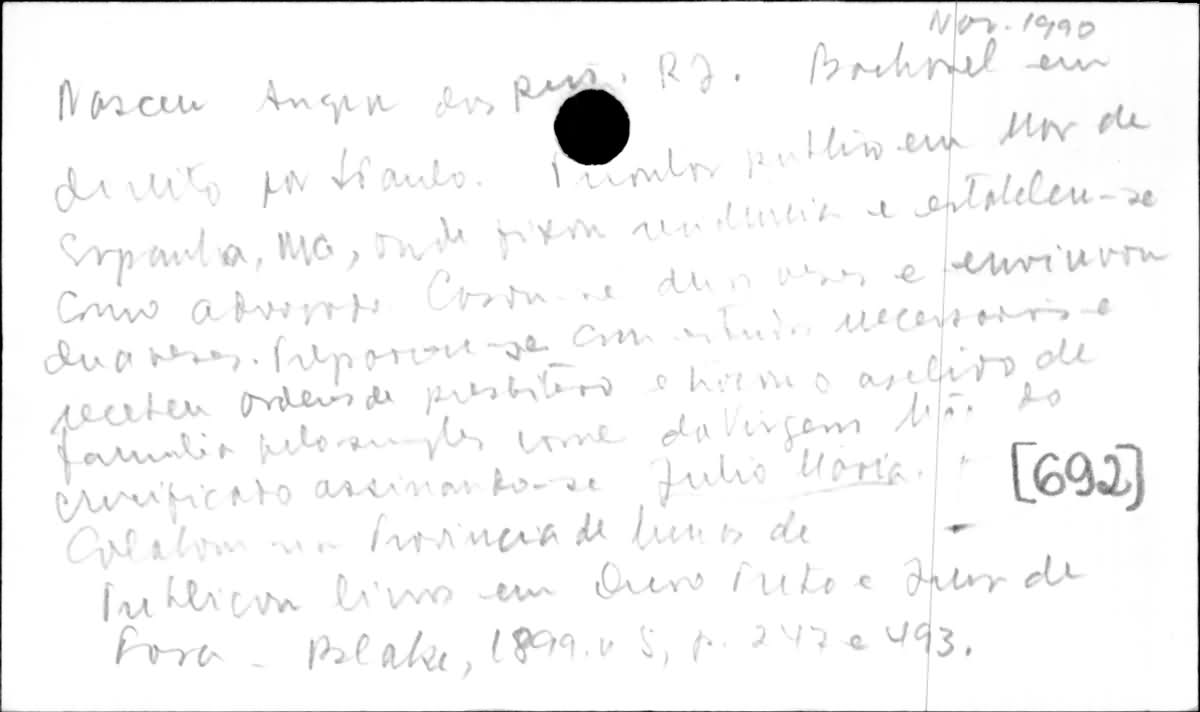 Nov. 1990
Nasceu Angra dos Reis. RJ. Bacharel em
direito por S Paulo. Promotor publico em Mar de
Espanha, MG, onde fixou residencia e estabeleceu-se
como advogado. Casou-se duas vezes e enviuvou
duas vezes. Preparou-se com estudos necessarios e
recebeu ordens de presbitero e trocou o apelido de
familia pelo simples nome da Virgem Mãe do
crucificado assinando-se Julio Maria.
[692]
Colabora na Provincia de Minas de
Publicou livros em Ouro Preto e Juiz de
Fora - Blake, 1899. v 5, p. 247 e 493.